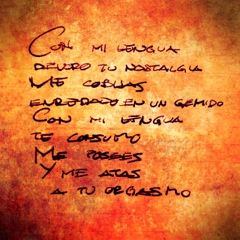 CON MI LENGUA
DEVORO TU NOSTALGIA
ME COBIJAS
ENREDADO EN UN GEMIDO
CON MI LENGUA
TE CONSUMO
ME POSEES
Y ME ATAS
A TU ORGASMO